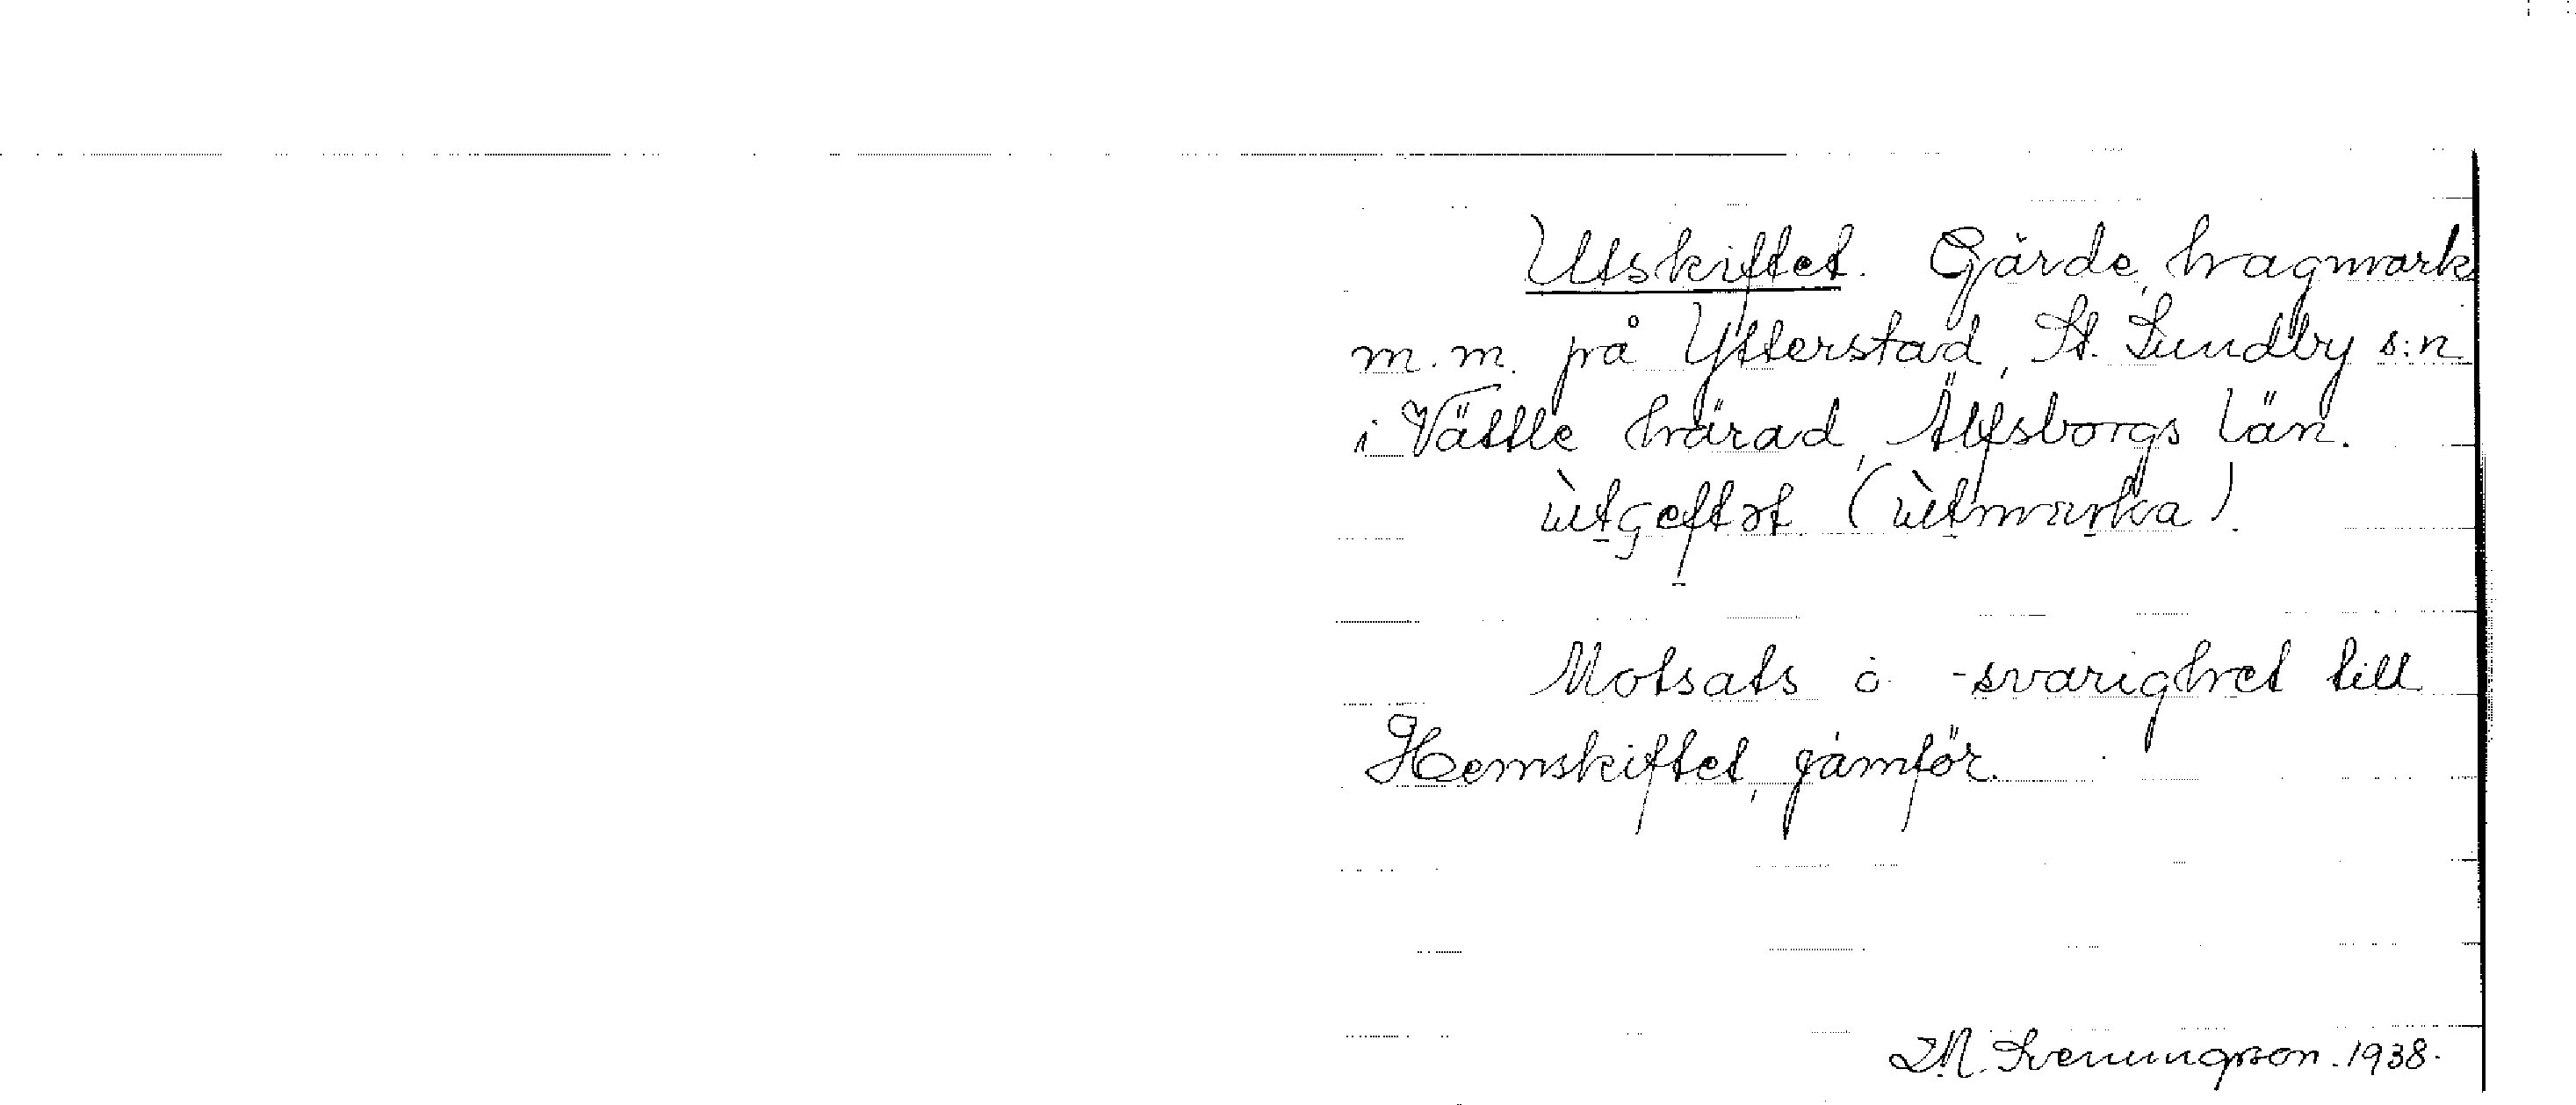 Utskiftet. Gärde, hagmark
m.m. på Ytterstad, St. Lundby s:n
i Vättle härad, Älfsborgs län.
Motsats o. -svarighet till
Hemskiftet, jämför.
Svenungsson. 1938.